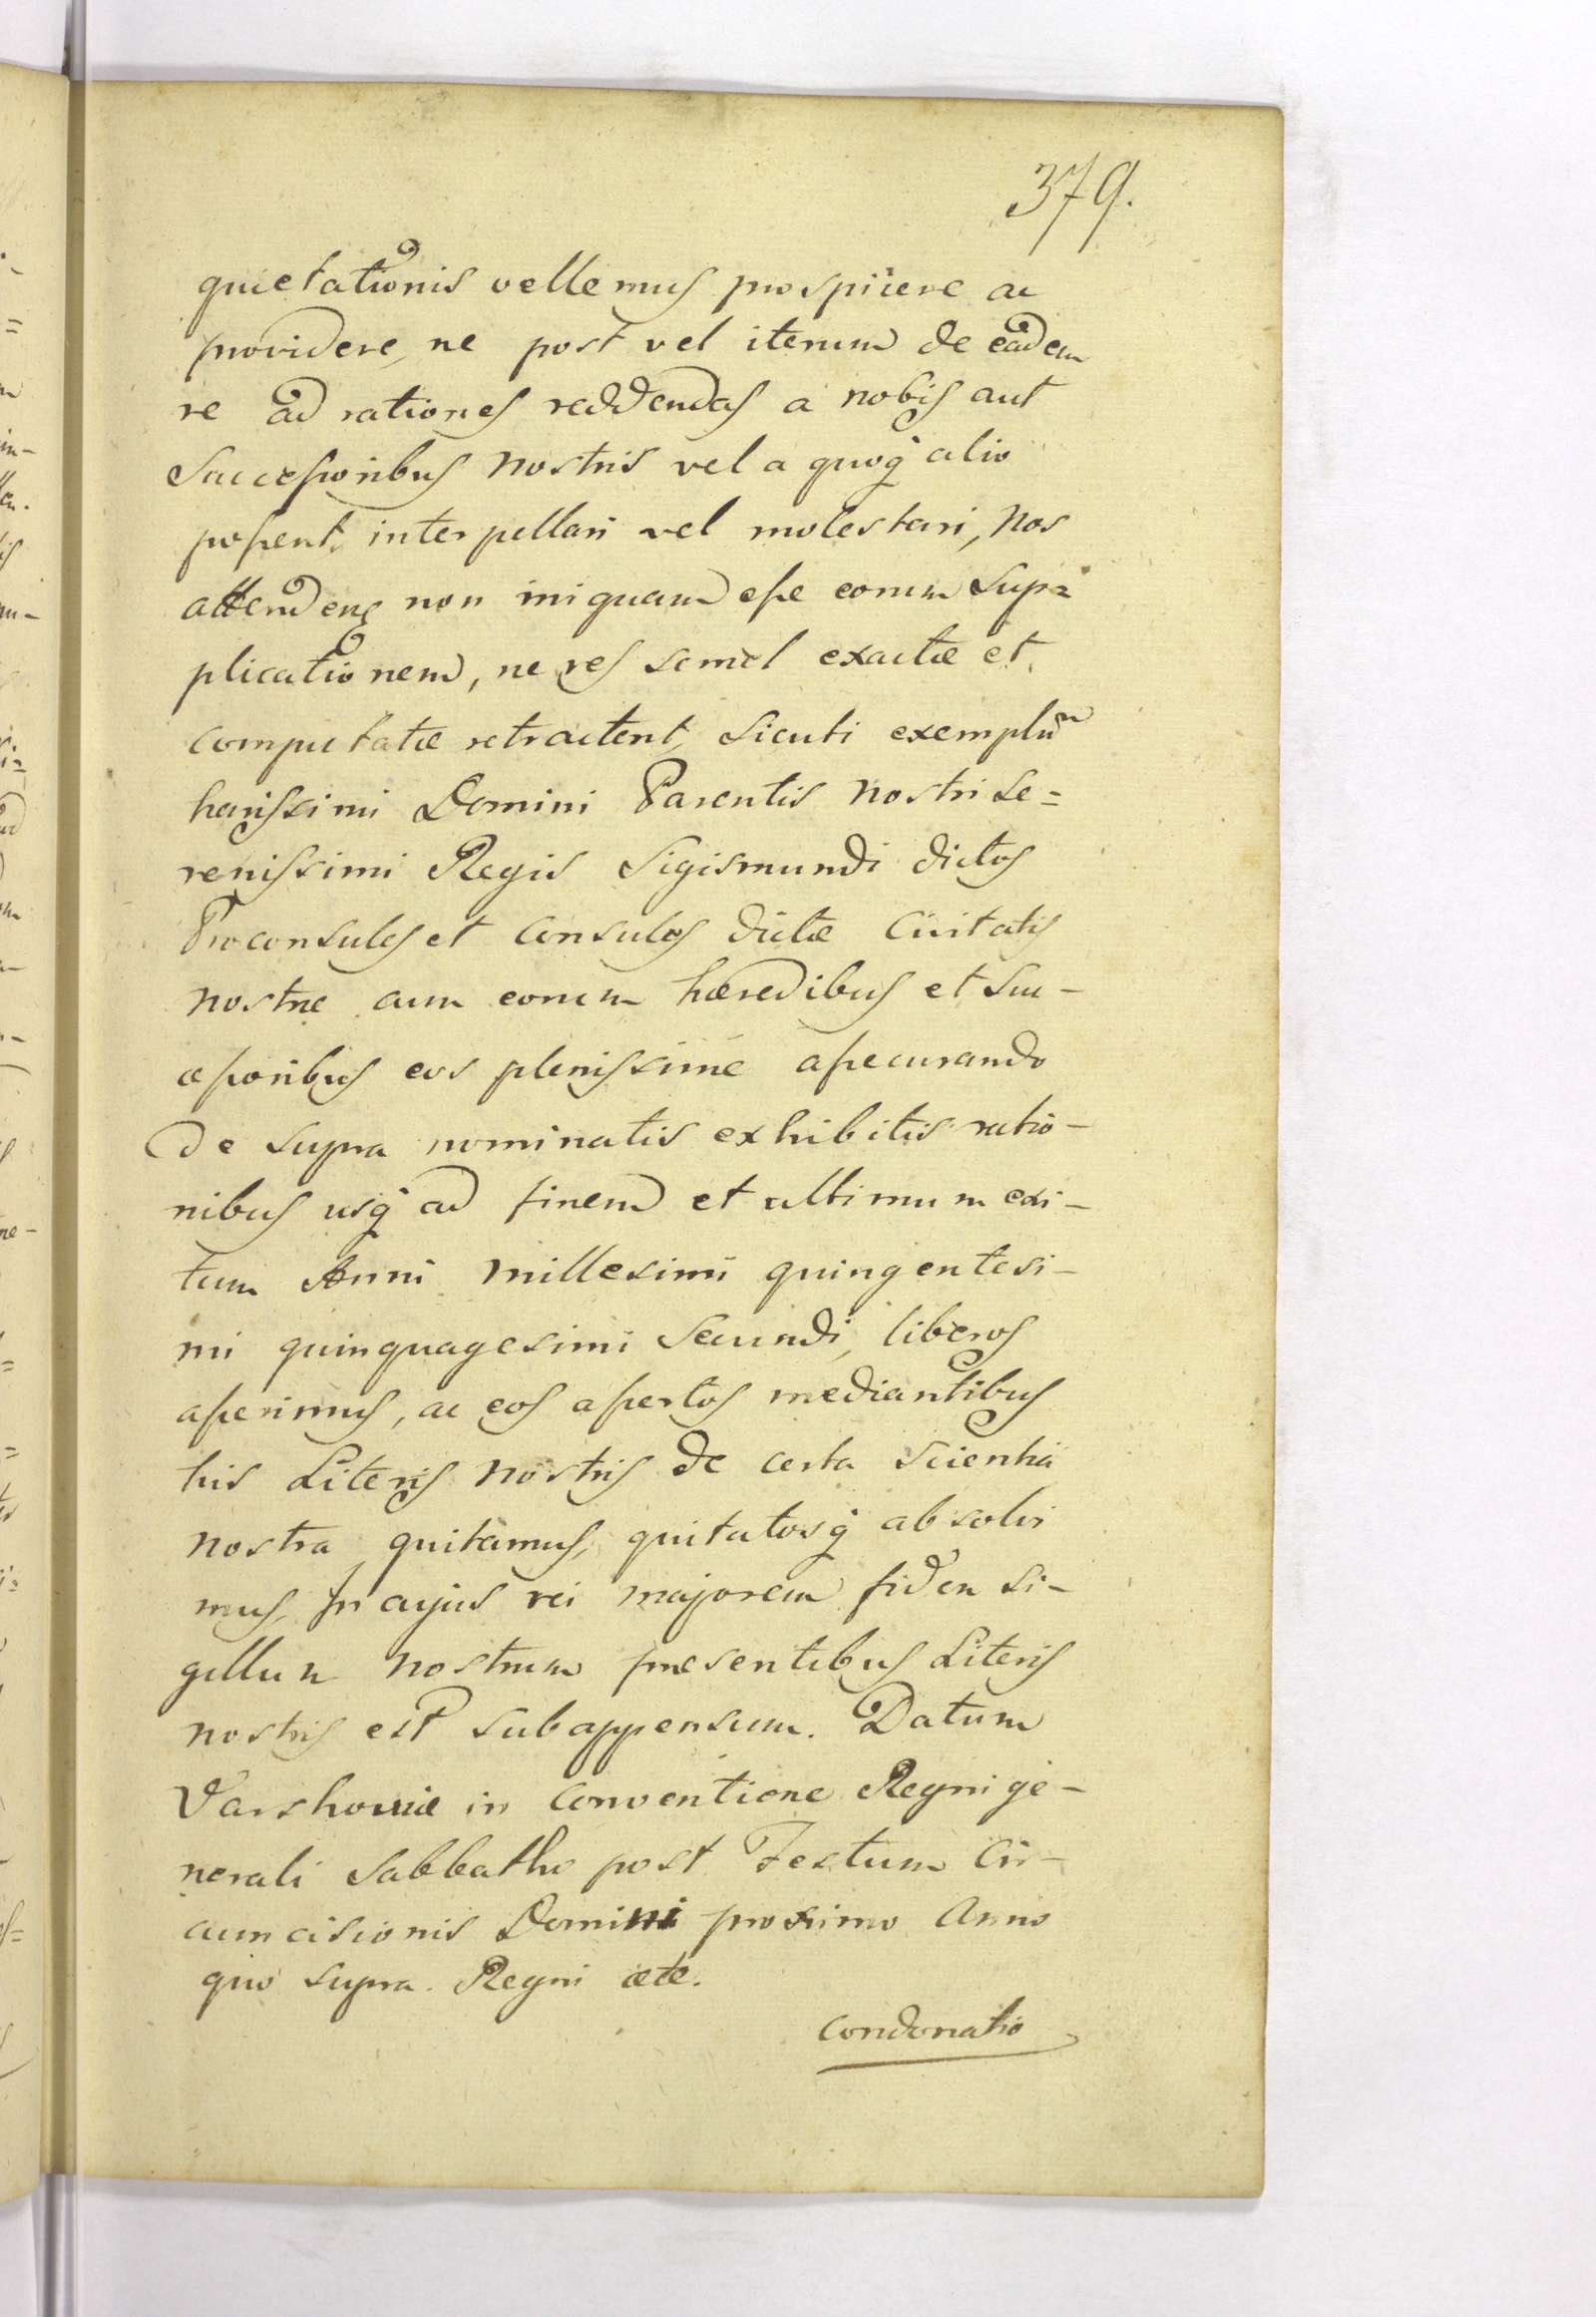 379.
quietationis vellemus prospicere ac
providere, ne post vel iterum de eadem
re ad rationes reddendas a nobis aut
Successoribus nostris vel a quoq́ alio
possent interpellari vel molestari, nos
attendens non iniquam esse eorum Sup=
plicationem, ne res semel exactæ et
computatæ retractent, sicuti exemplū
harissimi Domini Parentis nostri Se=
renissimi Regis Sigismundi dictos
Proconsules et Consules dictæ Civitatis
nostræ cum eorum hæredibus et Suc-
cessoribus eos plenissime assecurando
de supra nominatis exhibitis ratio-
nibus usq́ ad finem et ultimum exi-
tum Anni millesimi quingentesi-
mi quinquagesimi Secundi, liberos
asserimus, ac eos assertos mediantibus
his Literis nostris de certa scientia
nostra quitamus, quitatosq́ absolvi
mus, In cujus rei majorem fidem si-
gillum nostrum præsentibus Literis
nostris est subappensum. Datum
Varshoviæ in Conventione Regni ge-
nerali Sabbatho post Festum Cir-
cumcisionis Domini proximo Anno
quo supra. Regni ætc.
Condonatio